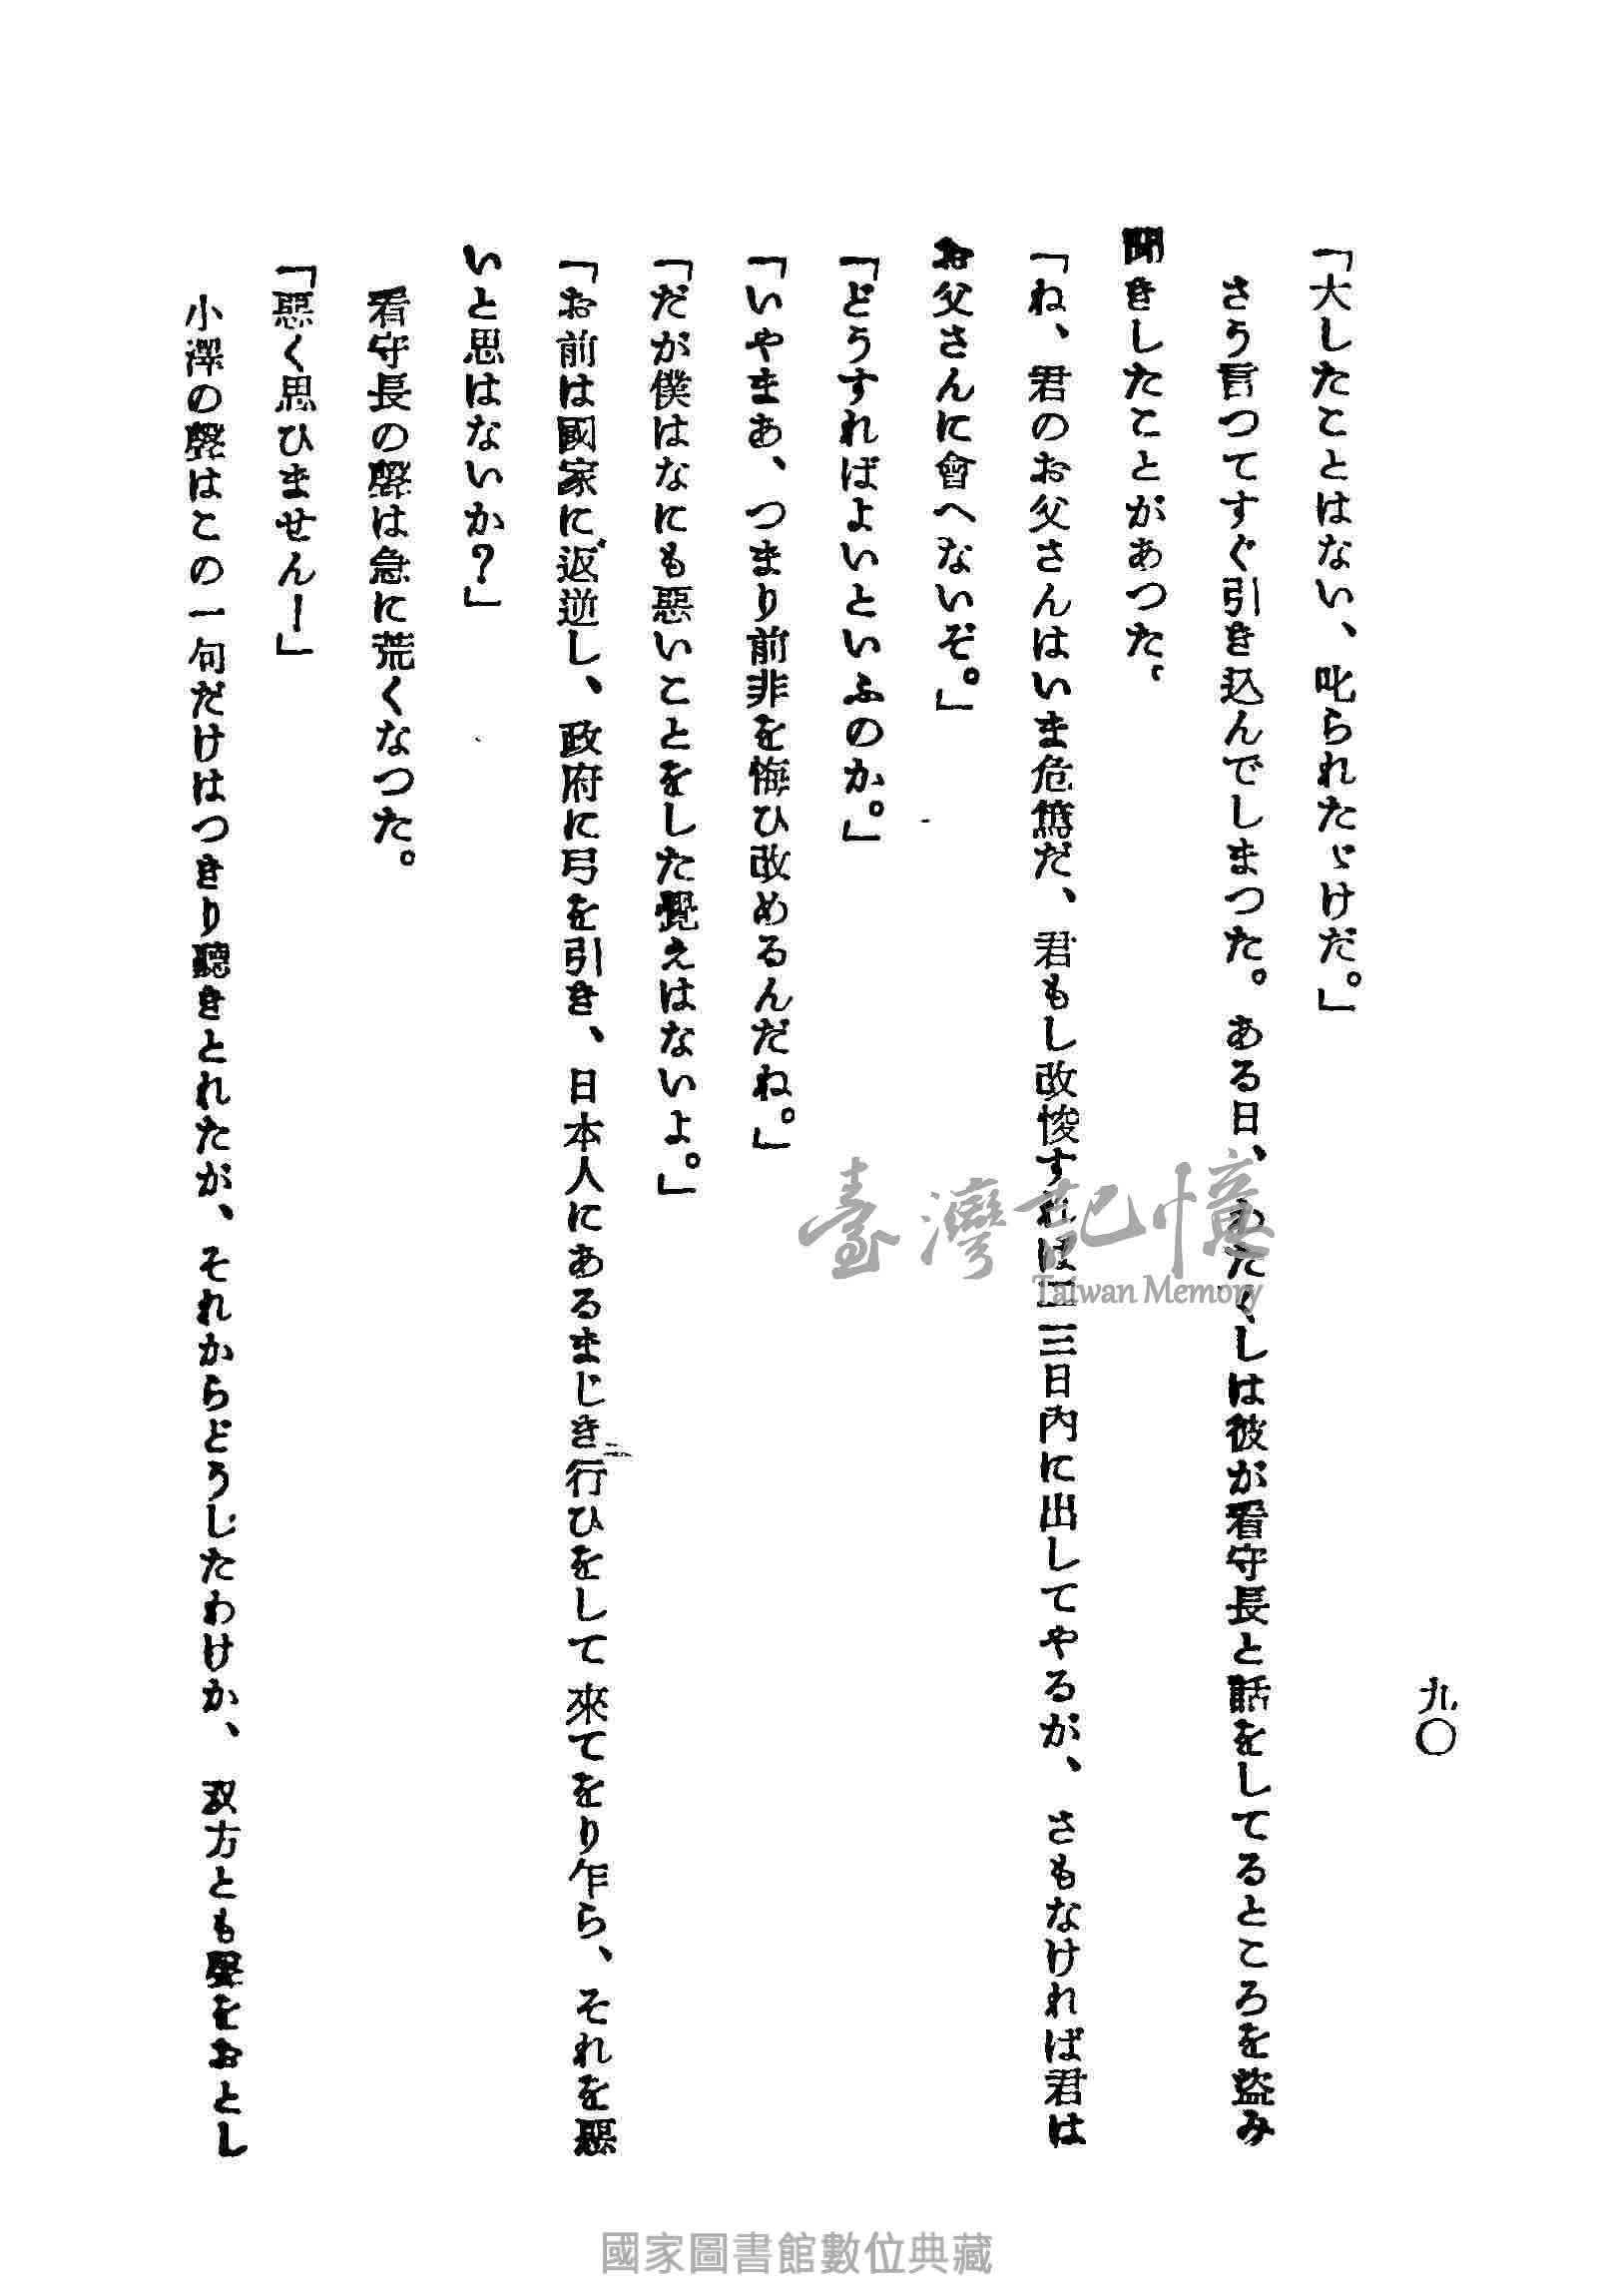 九〇
「大したことはない、叱られたゞけだ。」
さう言つてすぐ引き込んでしまつた。ある日、わたくしは彼が看守長と話をしてるところを盜み
聞きしたことがあつた、
「ね、君のお父さんはいま危篤だ、君もし改悛すれば二三日内に出してやるが、さもなければ君は
お父さんに會へないぞ。」
「どうすればよいといふのか。」
「いやまあ、つまり前非を悔ひ改めるんだね。」
「だが僕はなにも惡いことをした覺えはないよ。」
「お前は國家に返逆し、政府に弓を引き、日本人にあるまじき行ひをして來てをり乍ら、それを惡
いと思はないか？」
看守長の聲は急に荒くなつた。
「惡く思ひません！」
小澤の聲はこの一句だけはつきり聽きとれたが、それからどうしたわけか、双方とも聲をおとし
臺灣記憶
Taiwan Memory
國家圖書館數位典藏